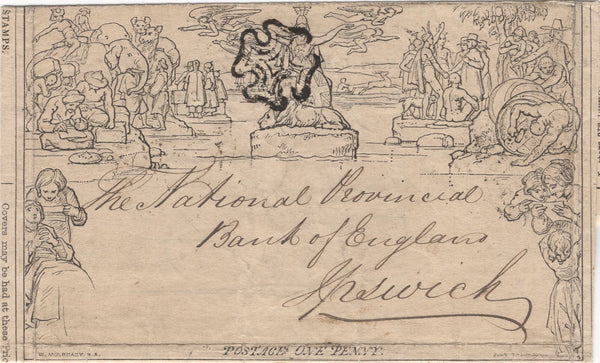 STAMPS.
Covers may be had at these Pric
The National Provincial
Bank of England
Ipswich
POSTAGE ONE PENNY.
W. MULREADY, R.A.